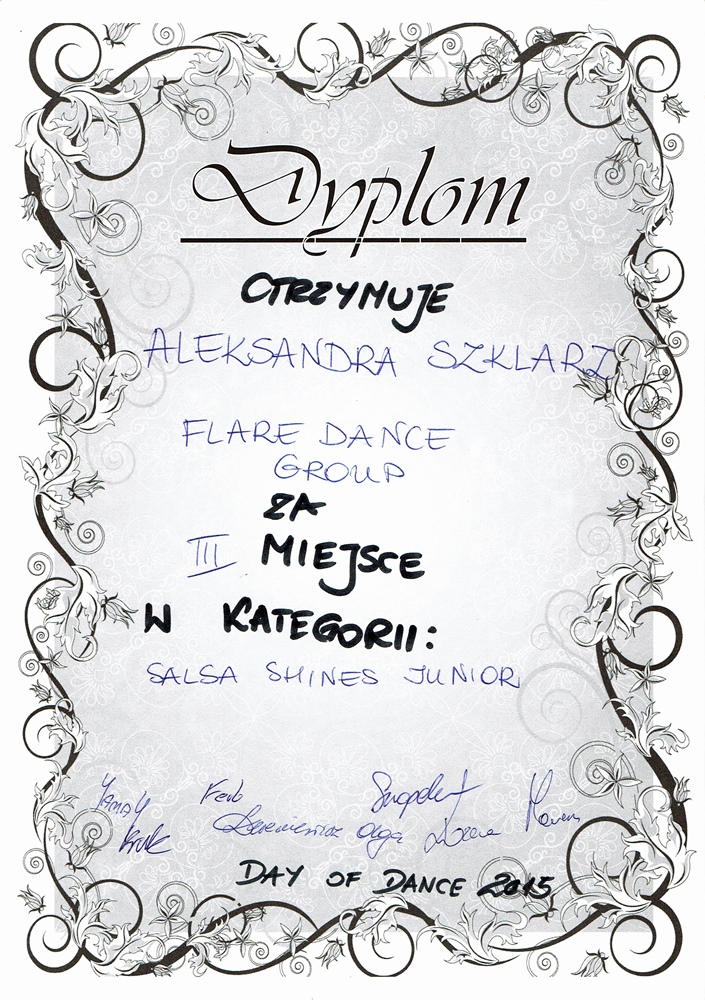 Dyplom
OTRZYMUJE
ALEKSANDRA SZKLARZ
FLARE DANCE
GROUP
ZA
III MIEJSCE
W KATEGORII:
SALSA SHINES JUNIOR
Olga
DAY OF DANCE 2015